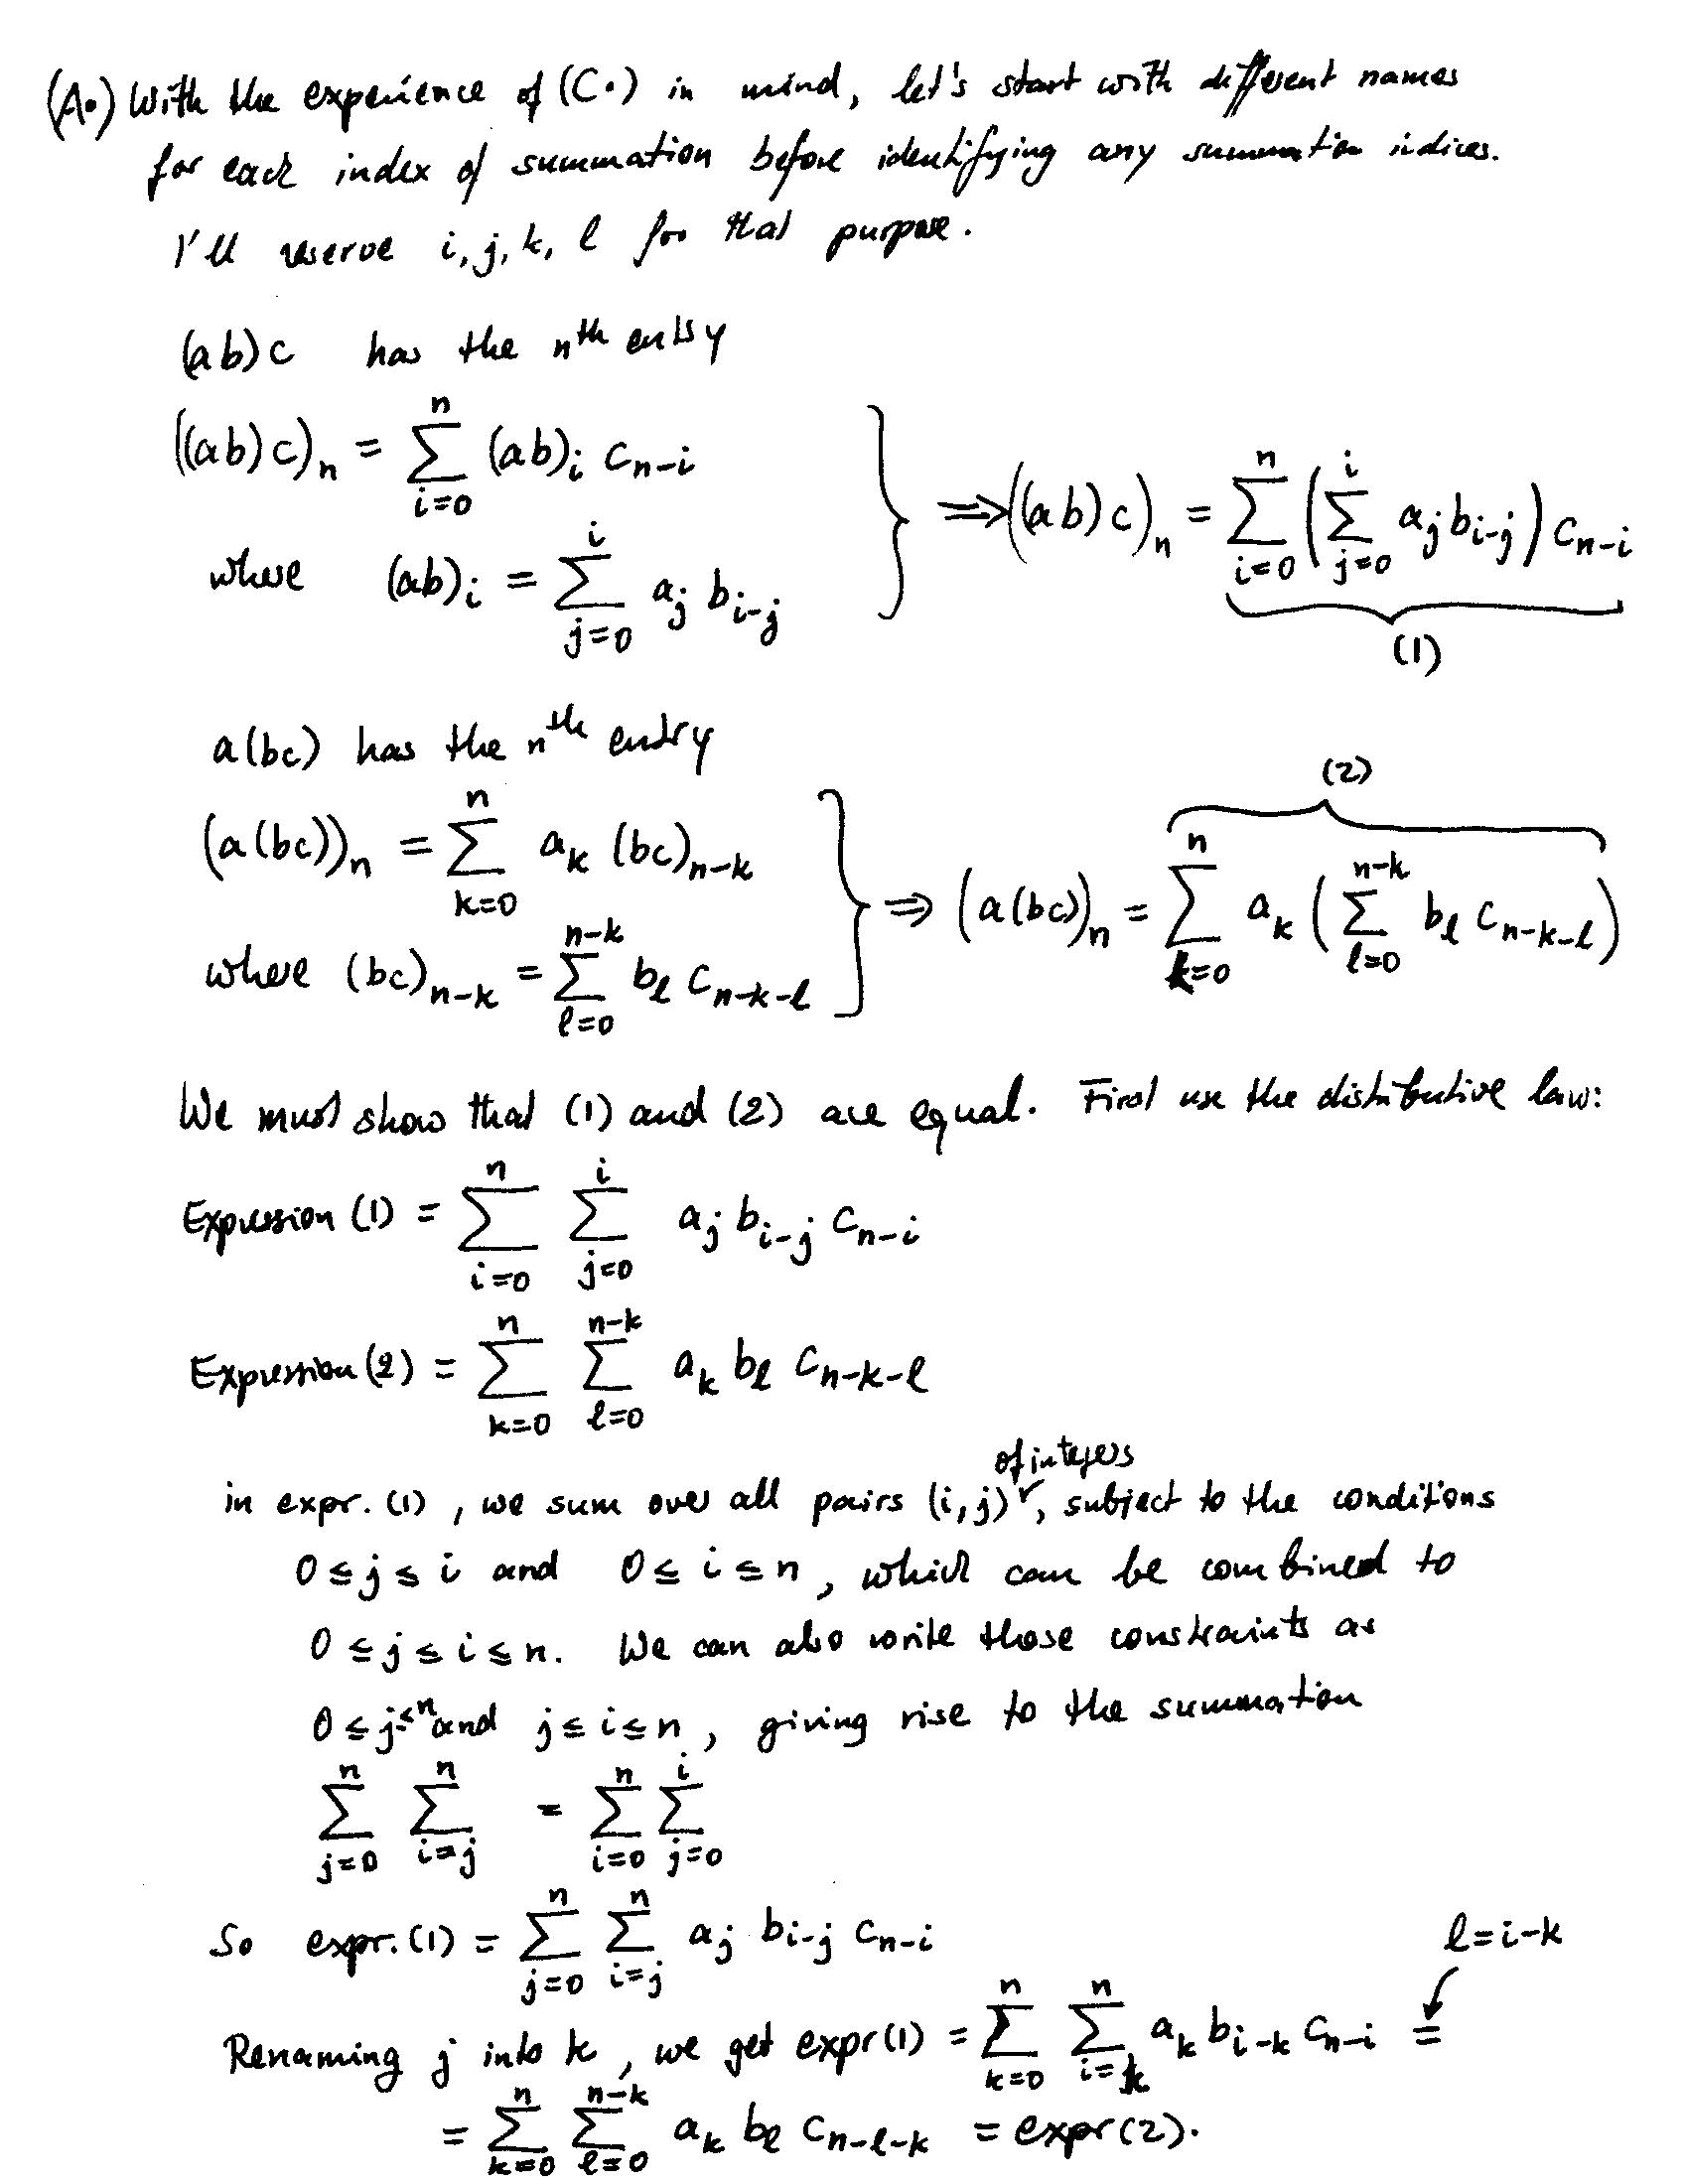 (A·) With the experience of (C·) in mind, let's start with different names
for each index of summation before identifying any summation indices.
I'll reserve i, j, k, l for that purpose.
(ab)c has the nᵗʰ entry
((ab)c)ₙ = ∑_{i=0}^{n} (ab)_i c_{n-i}
where (ab)_i = ∑_{j=0}^{i} a_j b_{i-j}
⟹ ((ab)c)_n = ∑_{i=0}^{n} (∑_{j=0}^{i} a_j b_{i-j}) c_{n-i}
(1)
a(bc) has the nᵗʰ entry
(a(bc))_n = ∑_{k=0}^{n} a_k (bc)_{n-k}
where (bc)_{n-k} = ∑_{l=0}^{n-k} b_l c_{n-k-l}
(2)
⟹ (a(bc))_n = ∑_{k=0}^{n} a_k (∑_{l=0}^{n-k} b_l c_{n-k-l})
We must show that (1) and (2) are equal. First use the distributive law:
Expression (1) = ∑_{i=0}^{n} ∑_{j=0}^{i} a_j b_{i-j} c_{n-i}
Expression (2) = ∑_{k=0}^{n} ∑_{l=0}^{n-k} a_k b_l c_{n-k-l}
in expr. (1), we sum over all pairs (i,j) of integers, subject to the conditions
0 ≤ j ≤ i and 0 ≤ i ≤ n, which can be combined to
0 ≤ j ≤ i ≤ n. We can also write those constraints as
0 ≤ j ≤ n and j ≤ i ≤ n, giving rise to the summation
∑_{j=0}^{n} ∑_{i=j}^{n} = ∑_{i=0}^{n} ∑_{j=0}^{i}
So expr. (1) = ∑_{j=0}^{n} ∑_{i=j}^{n} a_j b_{i-j} c_{n-i}
l=i-k
Renaming j into k, we get expr(1) = ∑_{k=0}^{n} ∑_{i=k}^{n} a_k b_{i-k} c_{n-i} =
= ∑_{k=0}^{n} ∑_{l=0}^{n-k} a_k b_l c_{n-l-k} = expr(2).